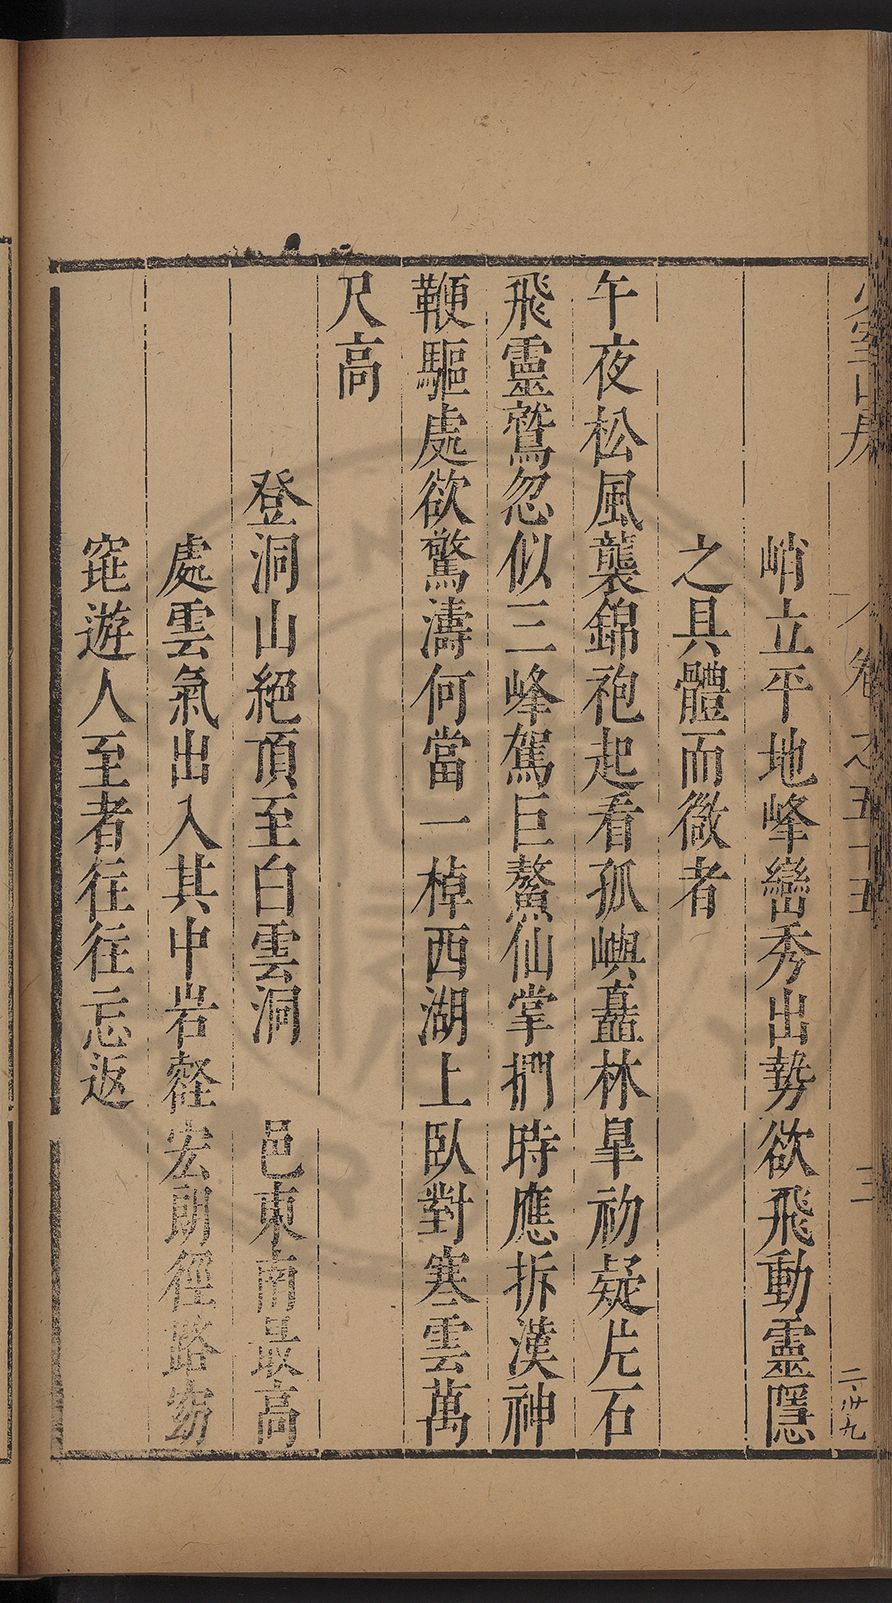 少室山房 卷之五十五 三
峭立平地峰巒秀出勢欲飛動靈隱
之具體而微者
午夜松風襲錦袍起看孤嶼矗林皐初疑片石
飛靈鷲忽似三峰駕巨鰲仙掌捫時應拆漢神
鞭驅處欲驚濤何當一棹西湖上臥對寒雲萬
尺高
登洞山絕頂至白雲洞 邑東南最高
處雲氣出入其中岩壑宏朗徑路窈
窕遊人至者往往忘返